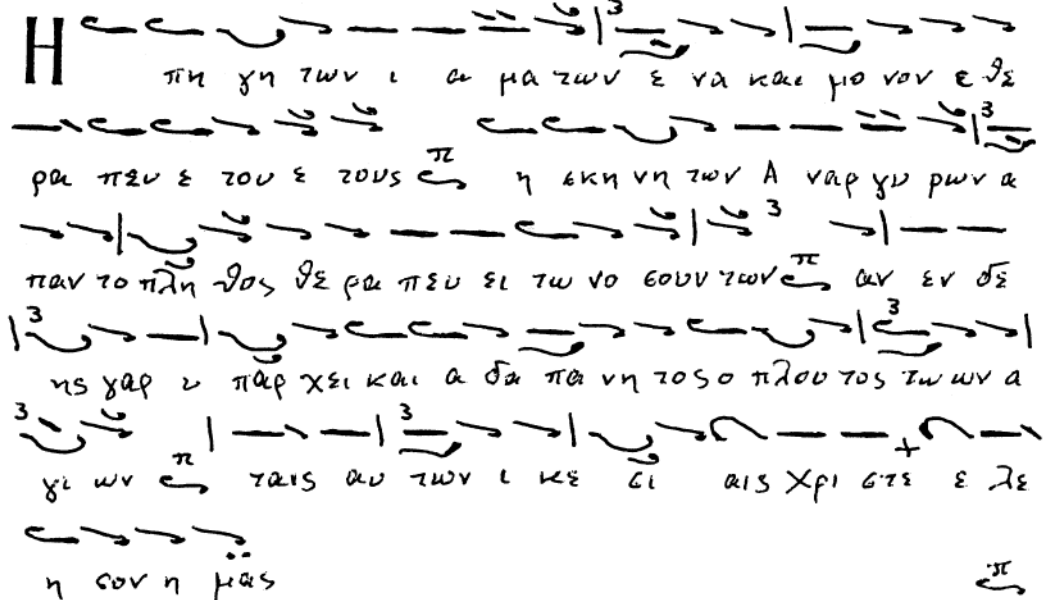 Η πη γη των ι α μα των ε να και μο νον ε θε
ρα πευ ε του ε τους π η εκη νη των Α ναρ γυ ρων α
παν το πλη θος θε ρα πευ ει τω νο σουν των π αν εν δε
ης γαρ υ παρ χει και α δα πα νη τος ο πλου τος τω ων α
γι ων π ταις αυ των ι κε σι αις Χρι στε ε λε
η σον η μας π